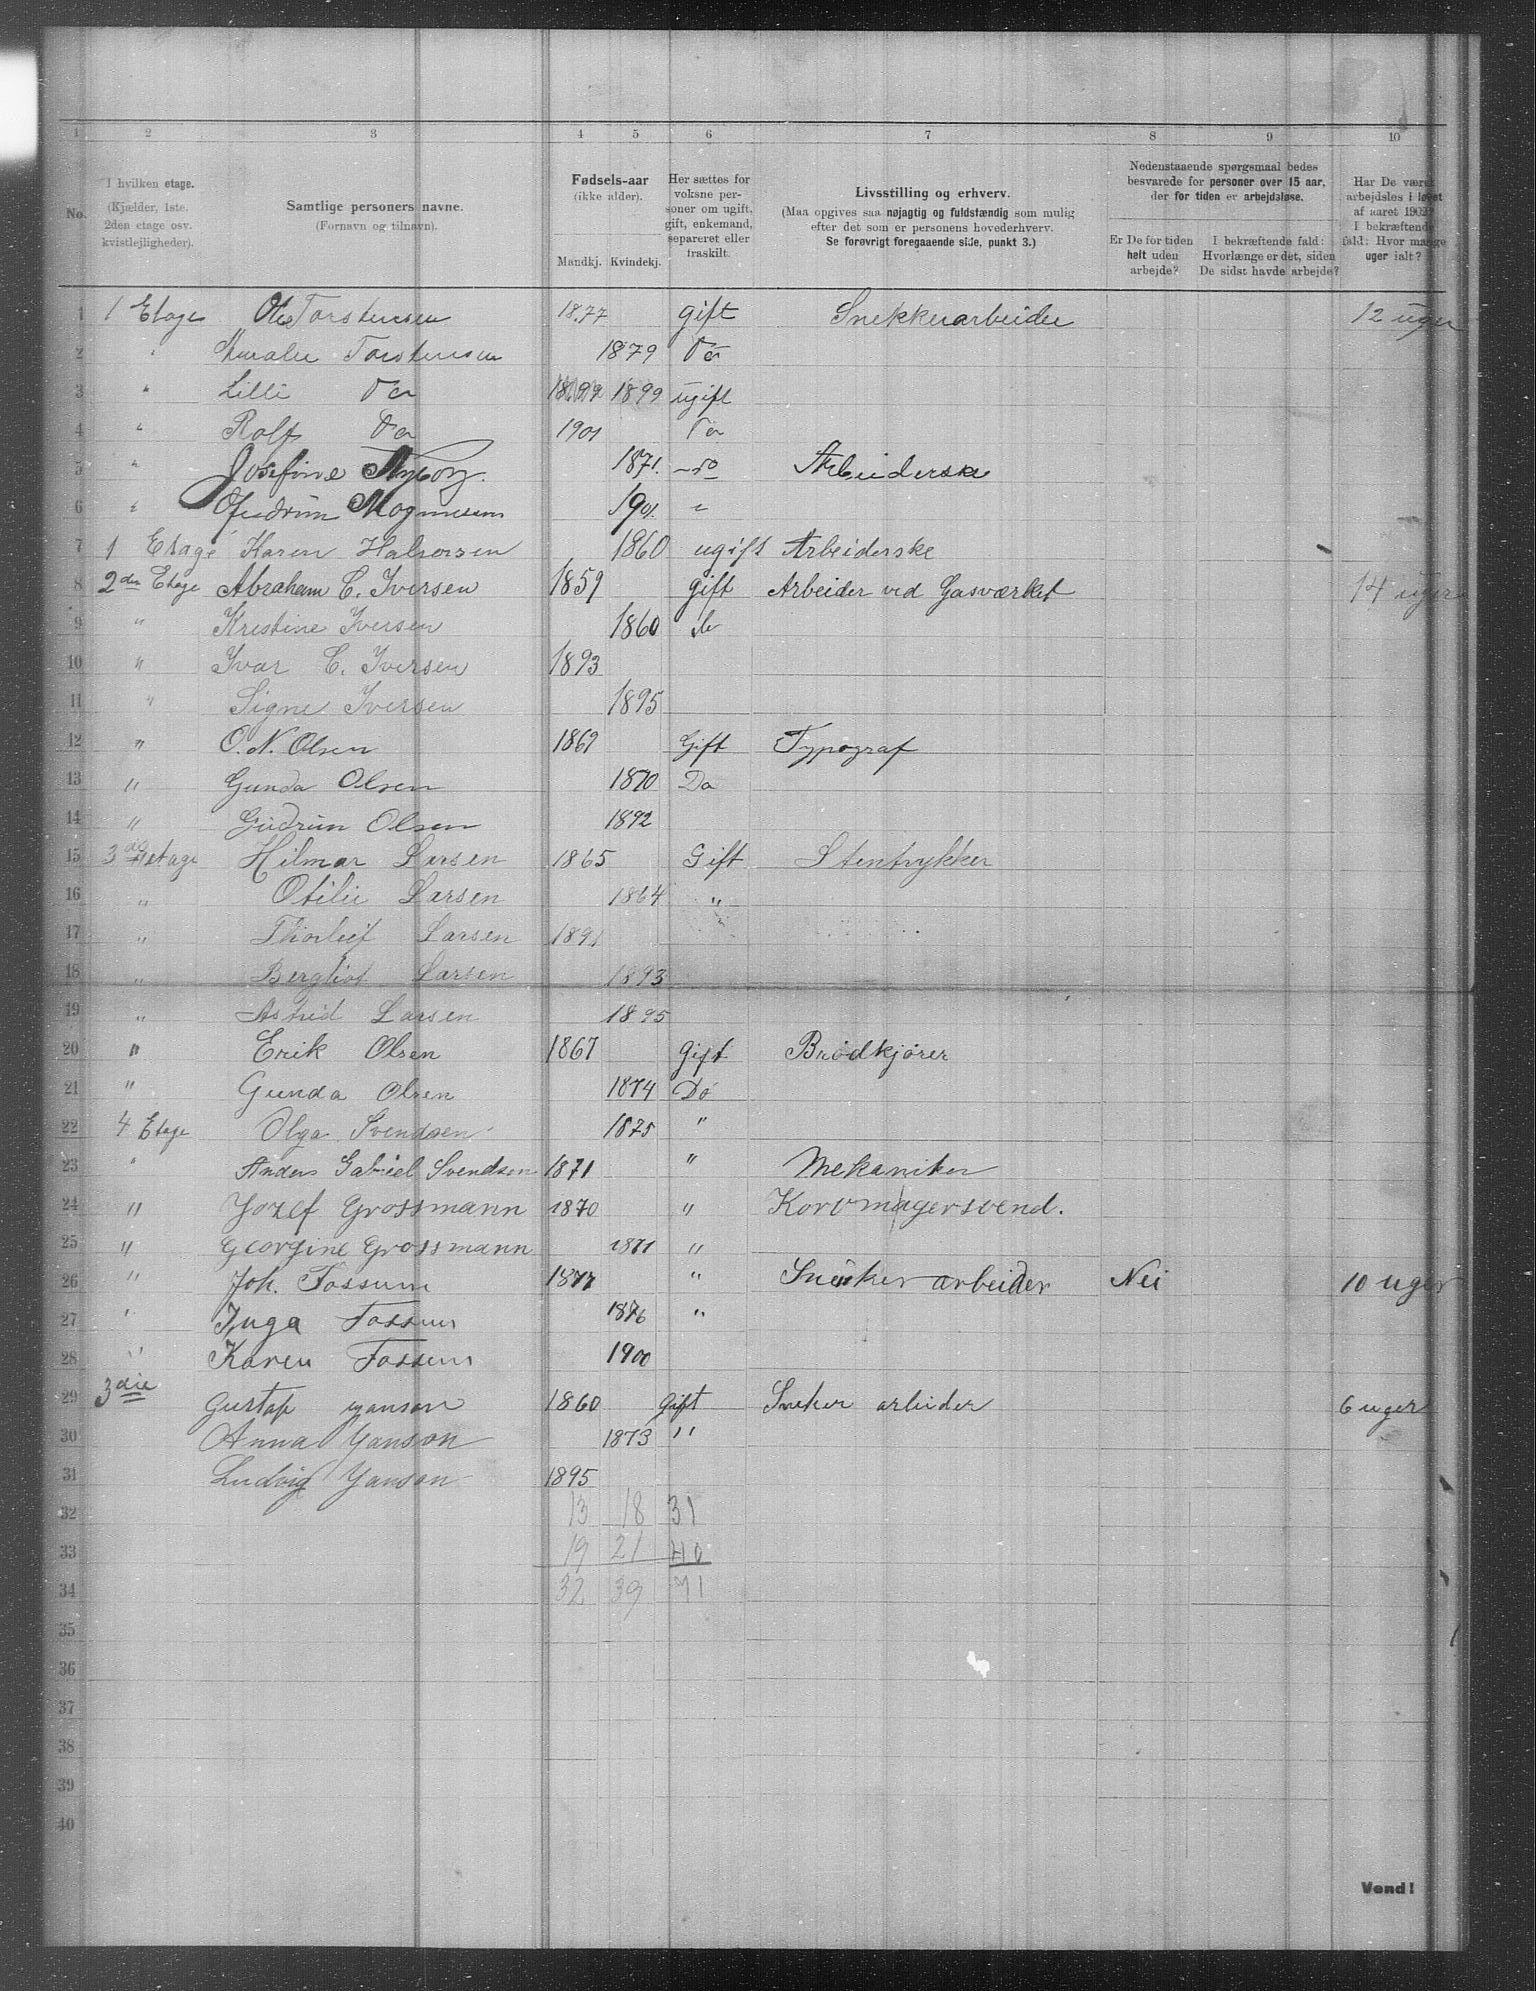 1 2 3 4 5 6 7 8 9 10
No. I hvilken etage. (Kjælder, 1ste. 2den etage osv. kvistlejligheder).
Samtlige personers navne. (Fornavn og tilnavn).
Fødsels-aar (ikke alder). Mandkj. Kvindekj.
Her sættes for voksne personer om ugift, gift, enkemand, separeret eller fraskilt.
Livsstilling og erhverv. (Maa opgives saa nøjagtig og fuldstændig som mulig efter det som er personens hovederhverv. Se forøvrigt foregaaende side, punkt 3.)
Nedenstaaende spørgsmaal bedes besvarede for personer over 15 aar, der for tiden er arbejdsløse.
Er De for tiden helt uden arbejde?
I bekræftende fald: Hvorlænge er det, siden De sidst havde arbejde?
Har De været arbejdsløs i løbet af aaret 1902? I bekræftende fald: Hvor mange uger ialt?
1 1 Etage Ole Torstensen 1877 gift Snekkerarbeider 12 uger
2 " Torstensen 1879 Do
3 " Lilli Do 1899 ugift
4 " Rolf Do 1901 Do
5 " Josefine 1871. do Arbeiderske
6 " Gudrun Magnussen 1901. "
7 1 Etage Karen Halvorsen 1860 ugift Arbeiderske
8 2den Etage Abraham C. Iversen 1859 gift Arbeider ved Gasværket 14 uger
9 " Kristine Iversen 1860 do
10 " Ivar C. Iversen 1893
11 " Signe Iversen 1895
12 " O. N. Olsen 1869 Gift Typograf
13 " Gunda Olsen 1870 Do
14 " Gudrun Olsen 1892
15 3die etage Hilmar Larsen 1865 Gift Stentrykker
16 " Otilie Larsen 1864 "
17 " Thorleif Larsen 1891
18 " Bergliot Larsen 1893
19 " Astrid Larsen 1895
20 " Erik Olsen 1867 Gift Brødkjører
21 " Gunda Olsen 1874 Do
22 4 Etage Olga Svendsen 1875 "
23 " Anders Gabriel Svendsen 1871 " Mekaniker
24 " Jozef Grossmann 1870 " Korvmagersvend.
25 " Georgine Grossmann 1871 "
26 " Joh. Fossum 1877 " Snecker arbeider Nei 10 uger
27 " Inga Fossum 1876 "
28 " Karen Fossum 1900
29 3die Gustaf Yanson 1860 Gift Sneker arbeider 6 uger
30 Anna Yanson 1873 "
31 Ludvig Yanson 1895
32 13 18 31
33 19 21 40
34 32 39 71
35
36
37
38
39
40
Vend!